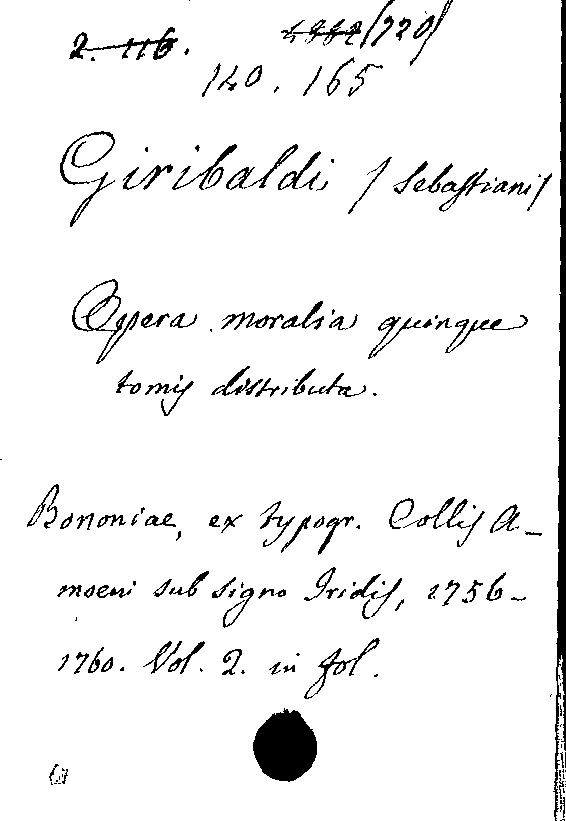 2. 116. (720)
140. 165
Giribaldi /Sebastiani/
Opera moralia quinque
tomis distributa.
Bononiae, ex typogr. Collis A-
moeni sub signo Iridis, 1756-
1760. Vol. 2. in fol.